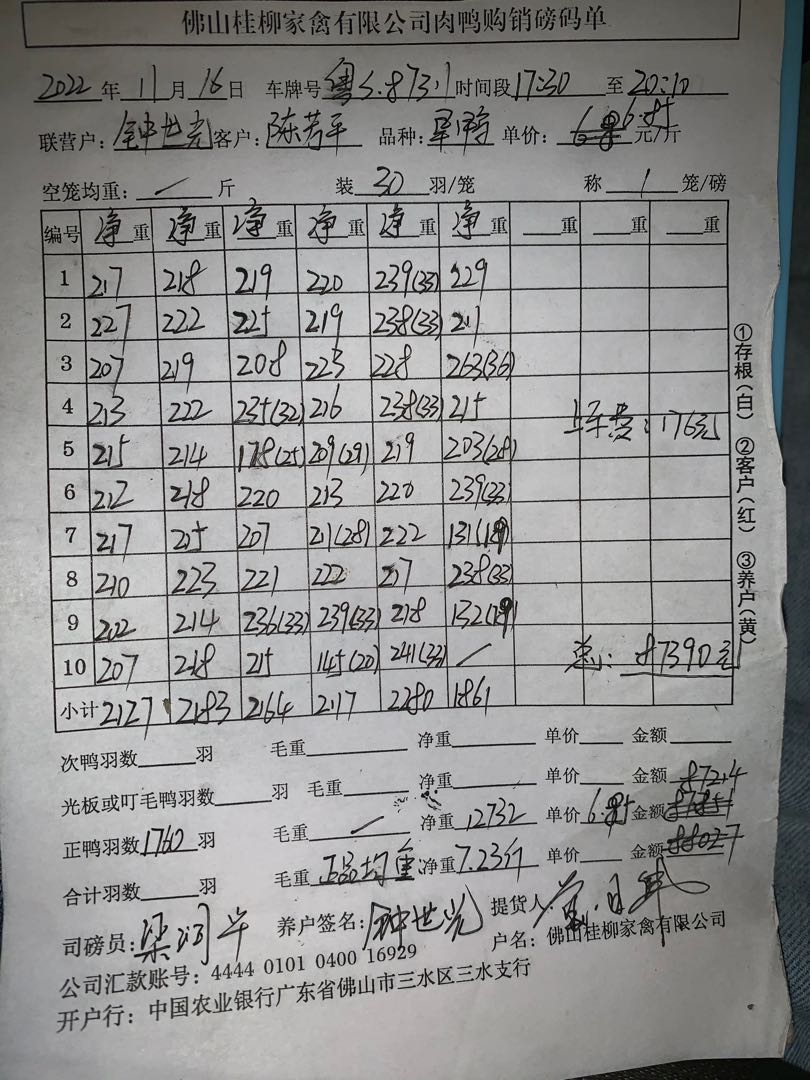 佛山桂柳家禽有限公司肉鸭购销磅码单
2022 年 11 月 16 日 车牌号 粤S.8731 时间段 17:30 至 20:10
联营户：钟世光 客户：陈芳平 品种： 单价：6.85 元/斤
空笼均重： / 斤 装 30 羽/笼 称 1 笼/磅
编号 净重 净重 净重 净重 净重 净重 重 重 重
1 217 218 219 220 239(33) 229
2 227 222 225 219 238(33) 217
3 207 219 208 225 228 263(36)
4 213 222 235(32) 216 238(33) 215
上车费：176元
5 215 214 178(25) 209(29) 219 203(28)
6 212 218 220 213 220 239(33)
7 217 215 207 211(28) 222 131(18)
8 210 223 221 222 217 238(33)
9 202 214 236(33) 239(33) 218 132(19)
10 207 218 215 145(20) 241(33) /
总：87390元
小计 2127 2183 2164 2117 2280 1861
次鸭羽数 羽 毛重 净重 单价 金额
光板或叮毛鸭羽数 羽 毛重 净重 单价 金额 87214
正鸭羽数 1760 羽 毛重 / 净重 12732 单价 6.85 金额
合计羽数 羽 毛重 正品均重 净重 7.23斤 单价 金额
司磅员： 养户签名：钟世光 提货人：
公司汇款账号：4444 0101 0400 16929 户名：佛山桂柳家禽有限公司
开户行：中国农业银行广东省佛山市三水区三水支行
①存根(白) ②客户(红) ③养户(黄)